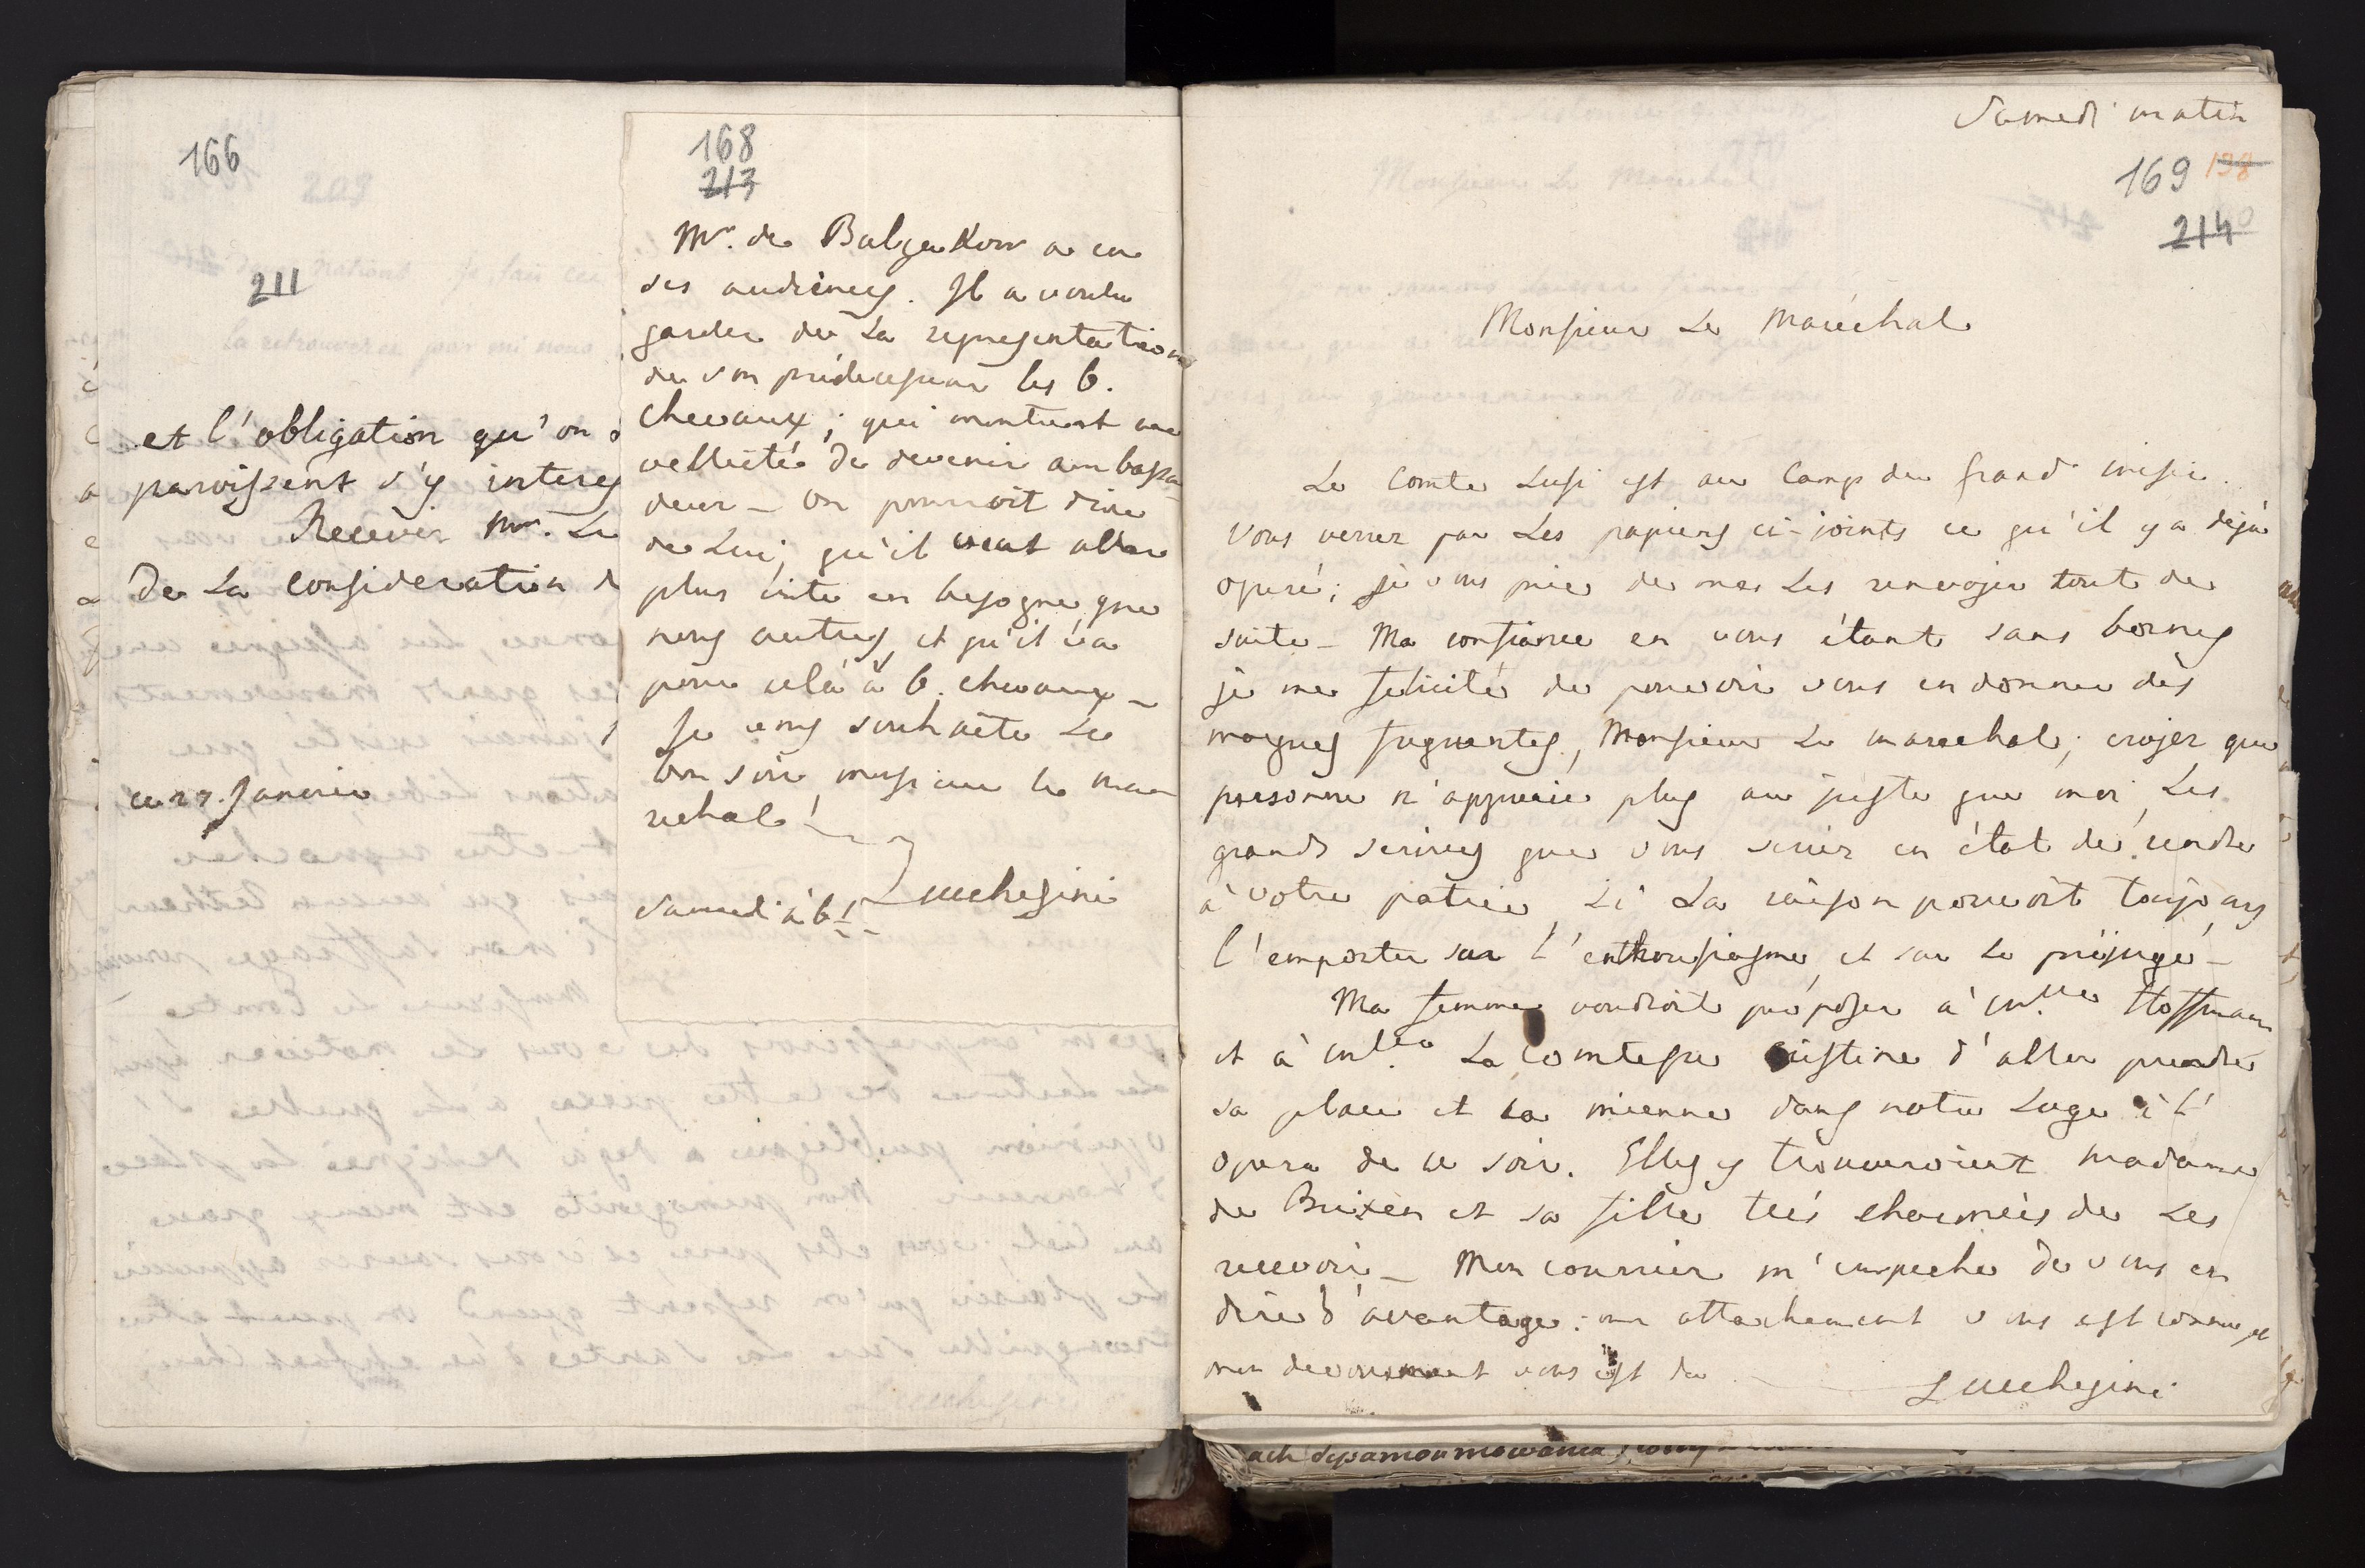 166
211
et l'obligation qu'on
paroissent s'y interes
Recevés Mr. Le
De La Consideration d
ce 27. Janvier
168
213
Mr. de Bulgakow a eu
ses audiences. Il a voulu
garder de La representation
de son prédecesseur les 6.
chevaux; qui montrent une
velleité de devenir ambassa-
deur - on pourroit dire
de Lui, qu'il veut aller
plus vite en besogne que
nous autres, et qu'il va
pour celà à 6. chevaux -
Je vous souhaite Le
bon soir monsieur le ma-
rechal!
Lucchesini
Samedi à 6 h.
Samedi matin
169 198
214
Monsieur Le Maréchal
Le Comte Lusi est au Camp du Grand Visir.
Vous verrez par Les papiers ci-joints ce qu'il y a dejà
operé; je vous prie de me Les renvoyer tout de
suite - Ma confiance en vous étant sans bornes
je me felicite de pouvoir vous en donner des
marques frequentes, Monsieur Le marechal; croyez que
personne n'apprecie plus au juste que moi, Les
grands services que vous seriez en état de rendre
à votre patrie, si La raison pouvoit toujours
l'emporter sur l'enthousiasme, et sur Le préjugé -
Ma femme voudroit proposer à Mlle Hoffman
et à Mlle La comtesse Cristine d'aller prendre
sa place et La mienne dans notre Loge à L'
opera de ce soir. Elles y trouveroient Madame
de Brixen et sa fille très charmées de Les
recevoir - Mon courrier m'empeche de vous en
dire d'avantage: mon attachement vous est connu, et
mon devouement vous est du
Lucchesini